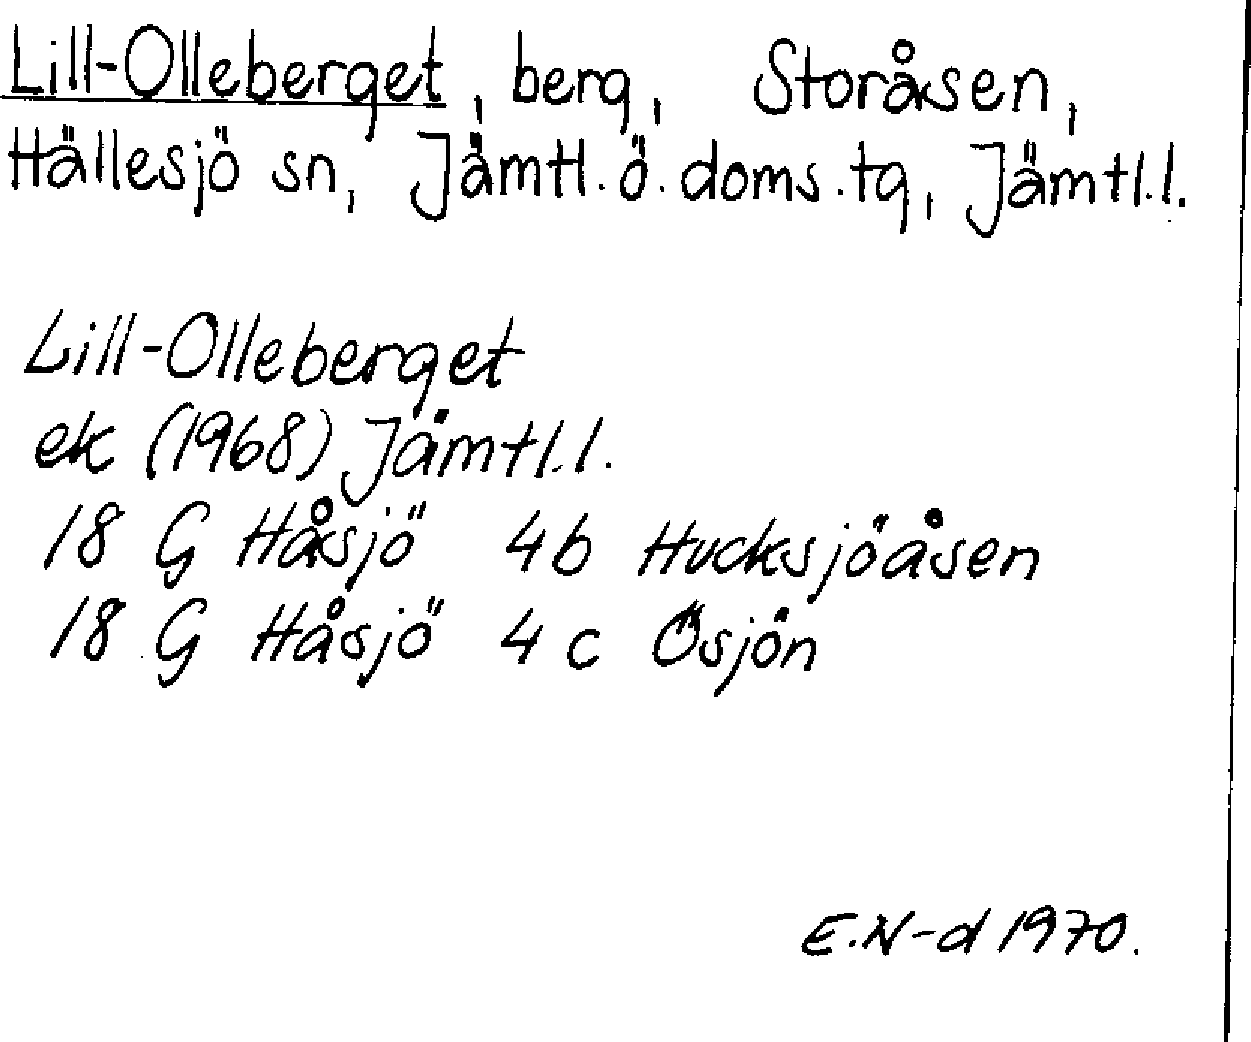 Lill-Olleberget, berg, Storåsen,
Hällesjö sn, Jämtl. ö. doms. tg, Jämtl. l.
Lill-Olleberget
ek (1968) Jämtl. l.
18 G Håsjö 4b Hucksjöåsen
18 G Håsjö 4c Ösjön
E.N-d 1970.